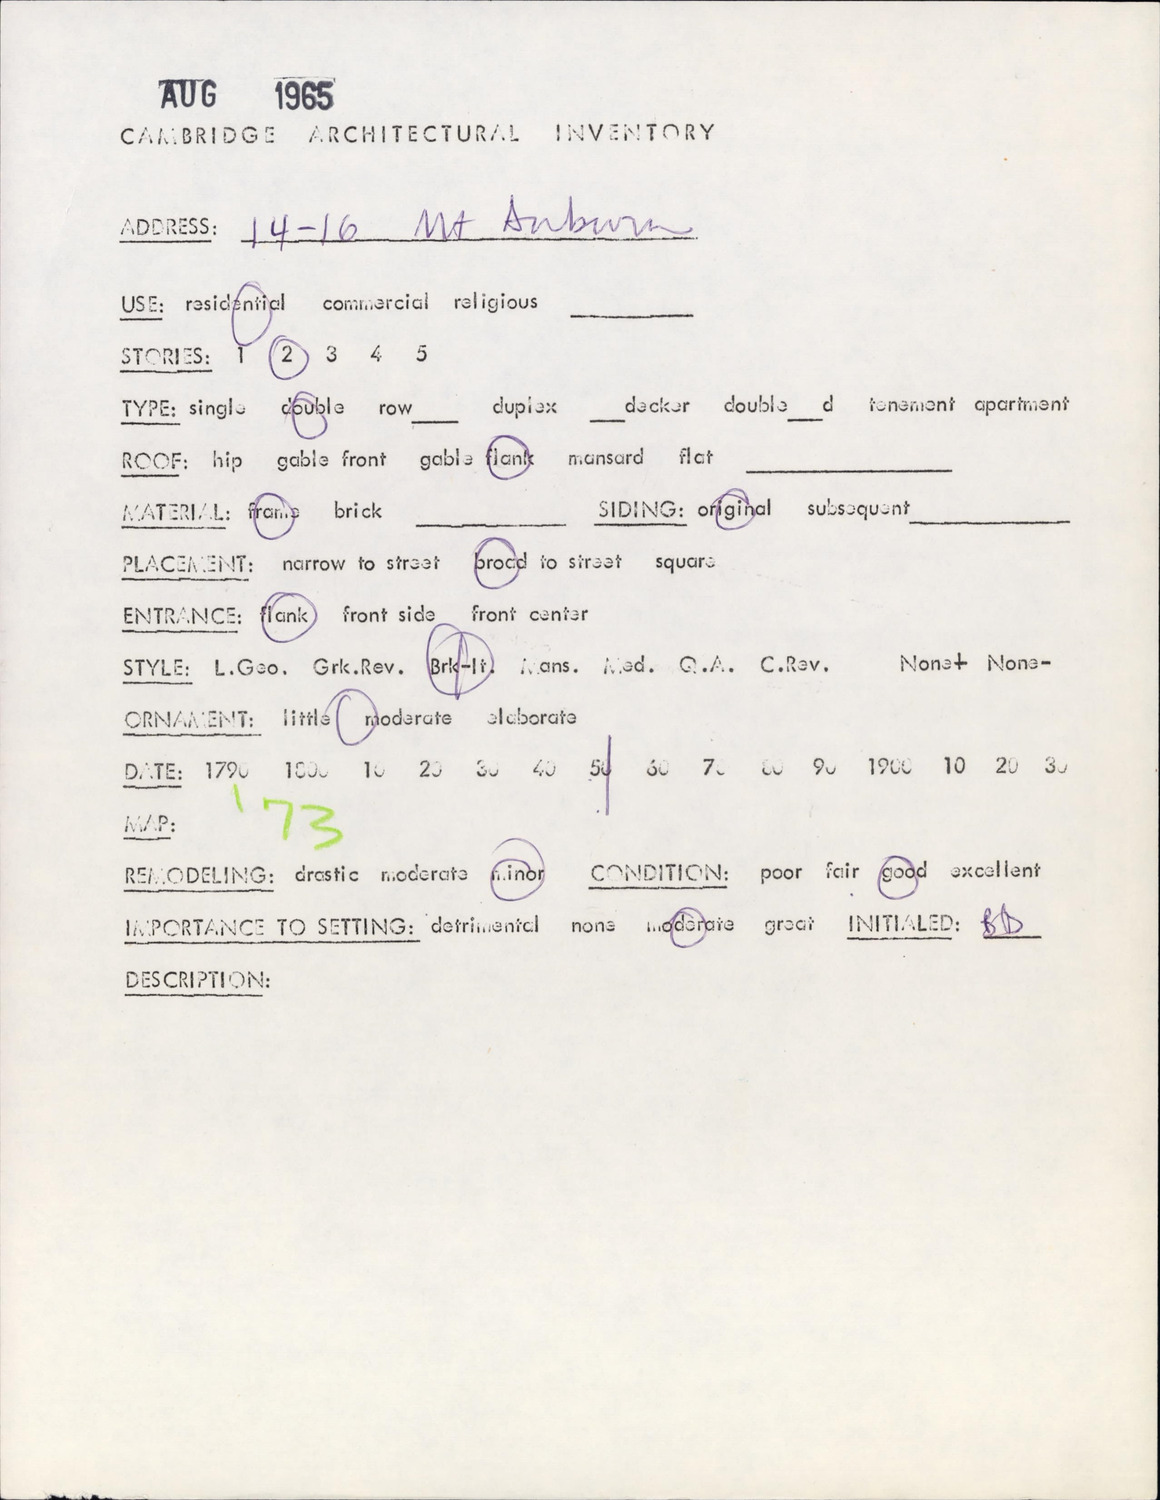 AUG 1965
CAMBRIDGE ARCHITECTURAL INVENTORY
ADDRESS: 14-16 Mt Auburn
USE: residential commercial religious
STORIES: 1 2 3 4 5
TYPE: single double row___ duplex ___decker double___d tenement apartment
ROOF: hip gable front gable flank mansard flat
MATERIAL: frame brick SIDING: original subsequent
PLACEMENT: narrow to street broad to street square
ENTRANCE: flank front side front center
STYLE: L.Geo. Grk.Rev. Brk-It. Mans. Med. Q.A. C.Rev. None+ None-
ORNAMENT: little moderate elaborate
DATE: 1790 1800 10 20 30 40 50 60 70 80 90 1900 10 20 30
'73
MAP:
REMODELING: drastic moderate minor CONDITION: poor fair good excellent
IMPORTANCE TO SETTING: detrimental none moderate great INITIALED: BD
DESCRIPTION: